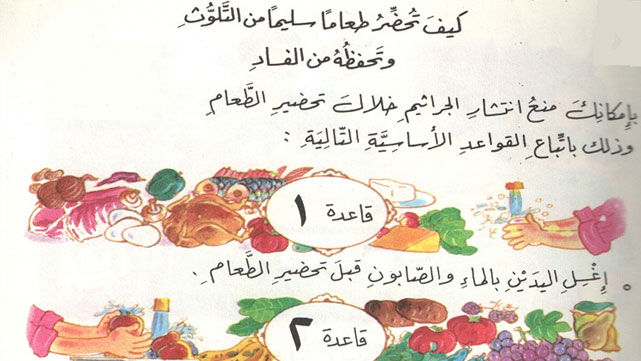 كيفَ تُحُضِّرُ طعامًا سليمًا من التَّلوُّثِ
وتَحفظُهُ من الفسادِ
بإمكانِكَ منعُ انتشارِ الجراثيمِ خلالَ تحضيرِ الطَّعامِ
وذلك باتِّباعِ القواعدِ الأساسيَّةِ التَّاليَةِ :
قاعدة ١
• إغْسِلِ اليديْنِ بالماءِ والصّابونِ قبلَ تحضيرِ الطَّعامِ .
قاعدة ٢